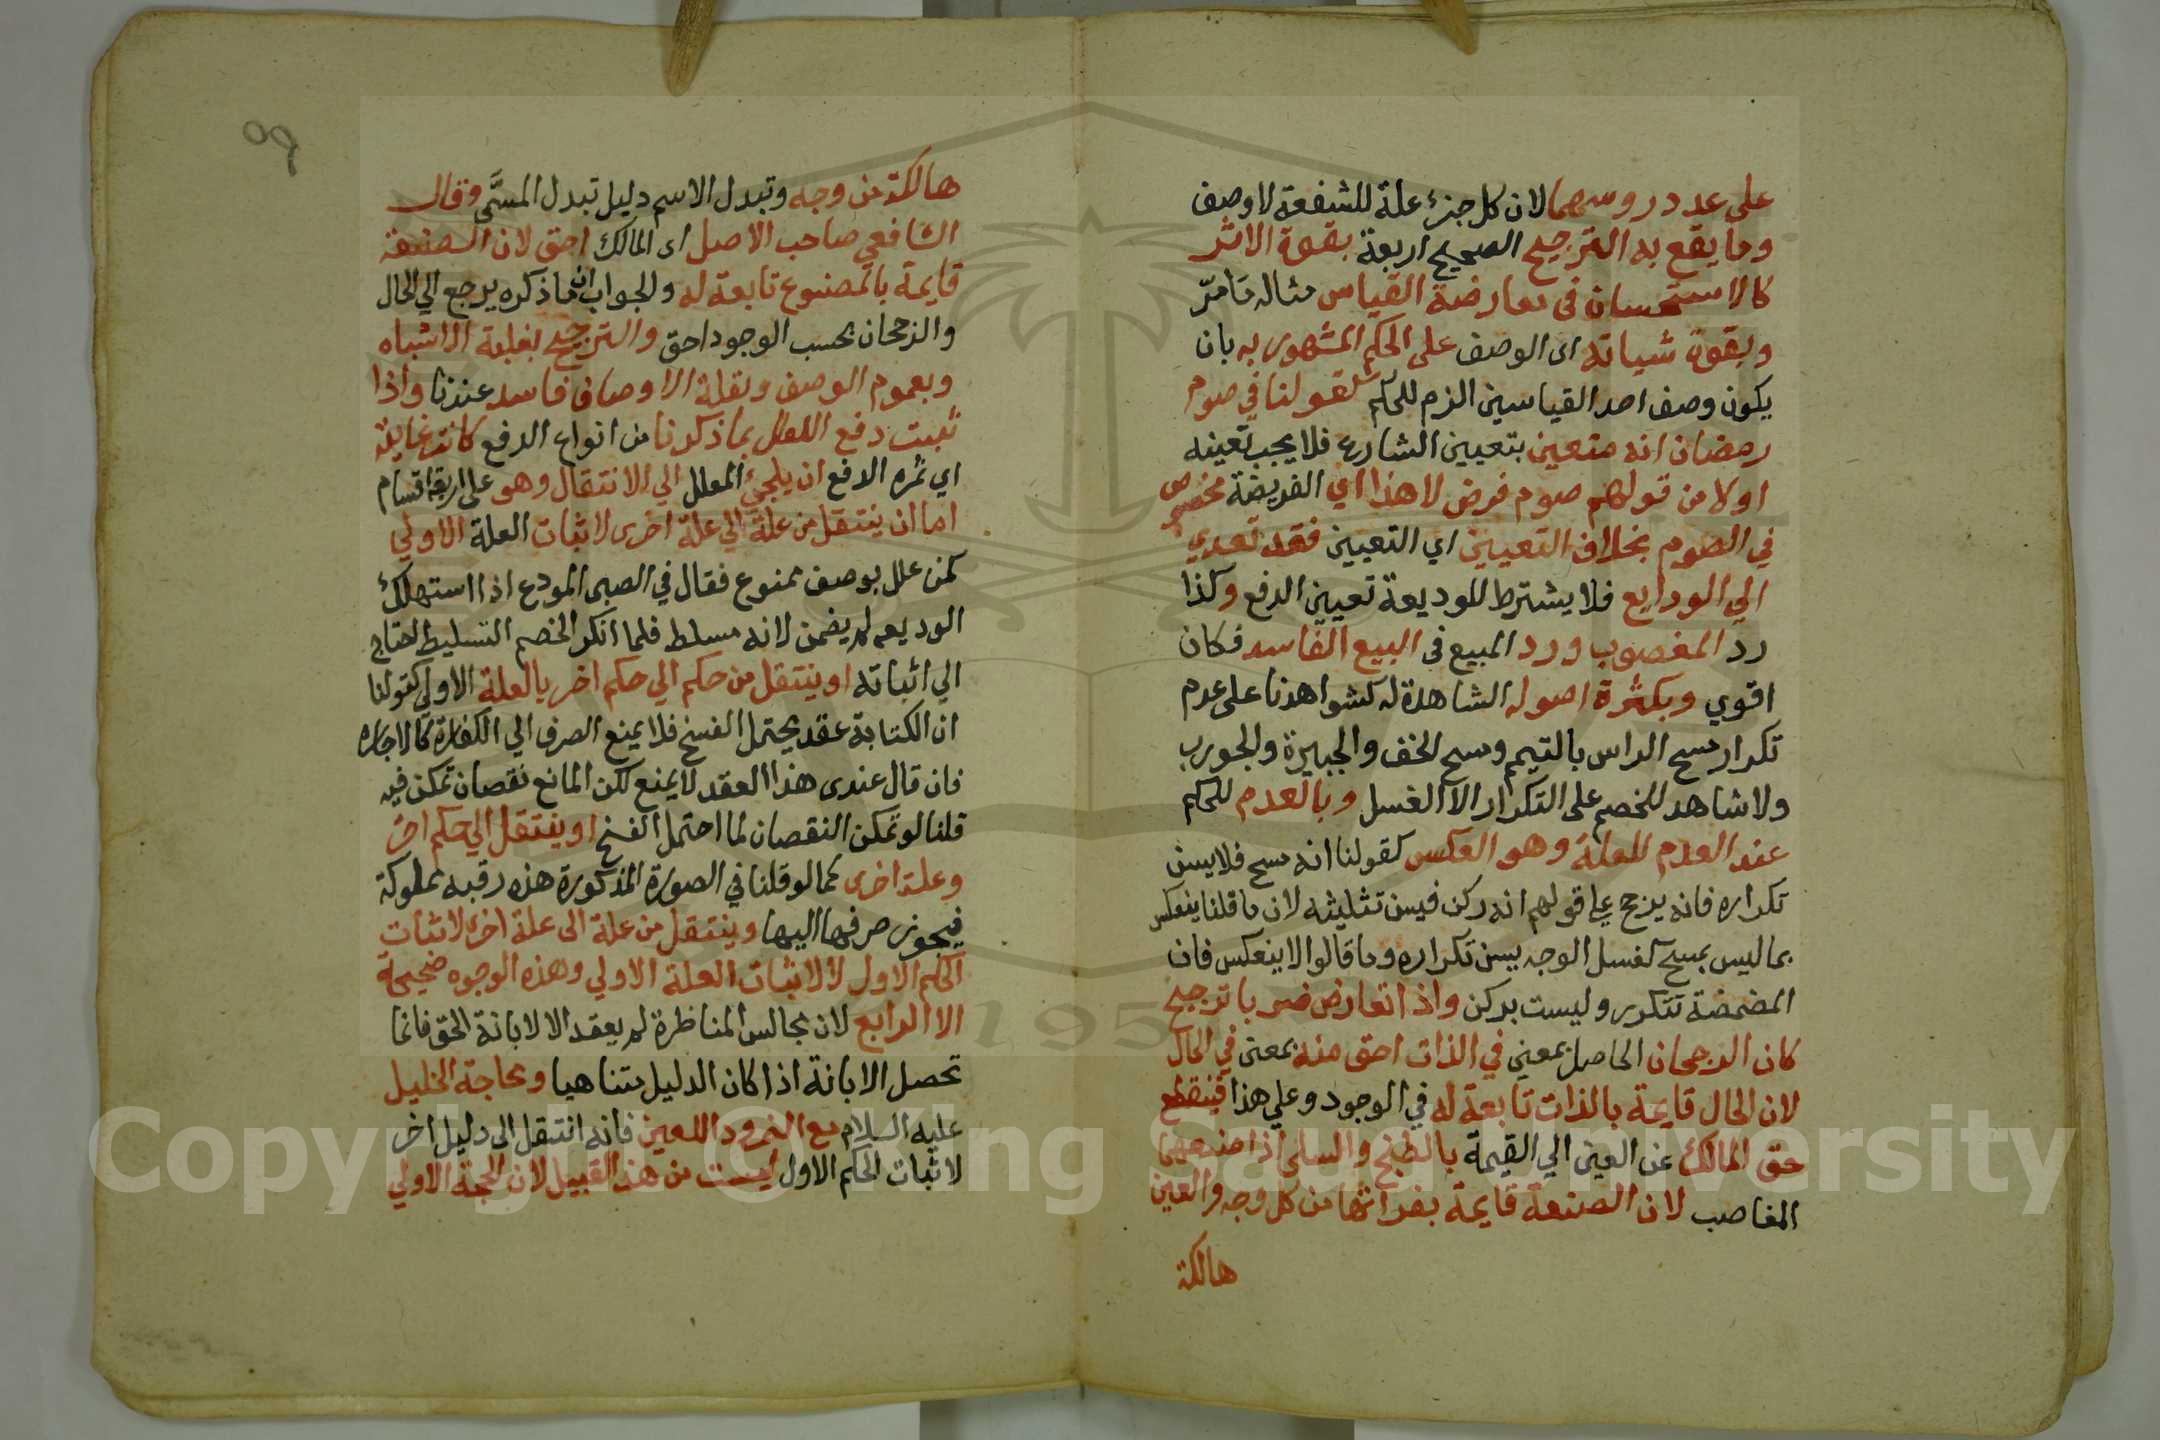 على عدد روسهما لان كل جزء علة للشفعة لا وصف
وما يقع به الترجيح الصحيح اربعة بقوة الاثر
كالاستحسان في معارضة القياس مثاله ما مرّ
وبقوة ثباته اى الوصف على الحكم المشهور به بان
يكون وصف احد القياسين الزم للحكم كقولنا في صوم
رمضان انه متعين بتعيين الشارع فلا يجب تعينه
اولا من قولهم صوم فرض لا هذا اي الفريضة مخصوص
في الصوم بخلاف التعيين اي التعيين فقد تعدي
الي الودايع فلا يشترط للوديعة تعيين الدفع وكذا
رد المغصوب ورد المبيع في البيع الفاسد فكان
اقوي وبكثرة اصوله الشاهدة له كشواهدنا على عدم
تكرار مسح الراس بالتيمم ومسح الخف والجبيرة والجورب
ولا شاهد للخصم على التكرار الا الغسل وبالعدم للحكم
عند العدم للعلة وهو العكس كقولنا انه مسح فلا يسن
تكراره فانه يرجح علي قولهم انه ركن فيسن تثليثه لان ما قلنا ينعكس
بما ليس بمسح كغسل الوجه يسن تكراره وما قالوا لا ينعكس فان
المضمضة تتكرر وليست بركن واذا تعارض ضربا ترجيح
كان الرجحان الحاصل بمعني في الذات احق منه بمعنى في الحال
لان الحال قايمة بالذات تابعة له في الوجود وعلي هذا فينقطع
حق المالك عن العين الي القيمة بالطبخ والسلى اذا صنعهما
الغاصب لان الصنعة قايمة بذاتها من كل وجه والعين
هالكة
هالكة من وجه وتبدل الاسم دليل تبدل المسمَّى وقال
الشافعي صاحب الاصل اى المالك احق لان الصنعة
قايمة بالمصنوع تابعة له والجواب ان ما ذكره يرجع الي الحال
والرجحان بحسب الوجود احق والترجيح بغلبة الاشباه
وبعموم الوصف وبقلة الاوصاف فاسد عندنا واذا
ثبت دفع العلل بما ذكرنا من انواع الدفع كانت غايته
اي ثمره الدفع ان يلجئ المعلل الي الانتقال وهو على اربعة اقسام
اما ان ينتقل من علة الي علة اخرى لاثبات العلة الاولي
كمن علل بوصف ممنوع فقال في الصبى المودع اذا استهلك
الوديعه لم يضمن لانه مسلط فلما انكر الخصم التسليط احتاج
الي اثباته او ينتقل من حكم الي حكم اخر بالعلة الاولي كقولنا
ان الكتابة عقد يحتمل الفسخ فلا يمنع الصرف الي الكفارة كالاجاره
فان قال عندى هذا العقد لا يمنع لكن المانع نقصان تمكن فيه
قلنا لو تمكن النقصان لما احتمل الفسخ او ينتقل الي حكم اخر
وعلة اخرى كما لو قلنا في الصورة المذكورة هذه رقبه مملوكة
فيجوز صرفها اليها وينتقل من علة الى علة اخرى لاثبات
الحكم الاول لا لاثبات العلة الاولي وهذه الوجوه صحيحة
الا الرابع لان مجالس المناظرة لم يعقد الا لابانة الحق فانما
تحصل الابانة اذا كان الدليل متناهيا ومحاجة الخليل
عليه السلام مع النمرود اللعين فانه انتقل الى دليل اخر
لاثبات الحكم الاول ليست من هذا القبيل لان الحجة الاولي
1957
Copyright © King Saud University